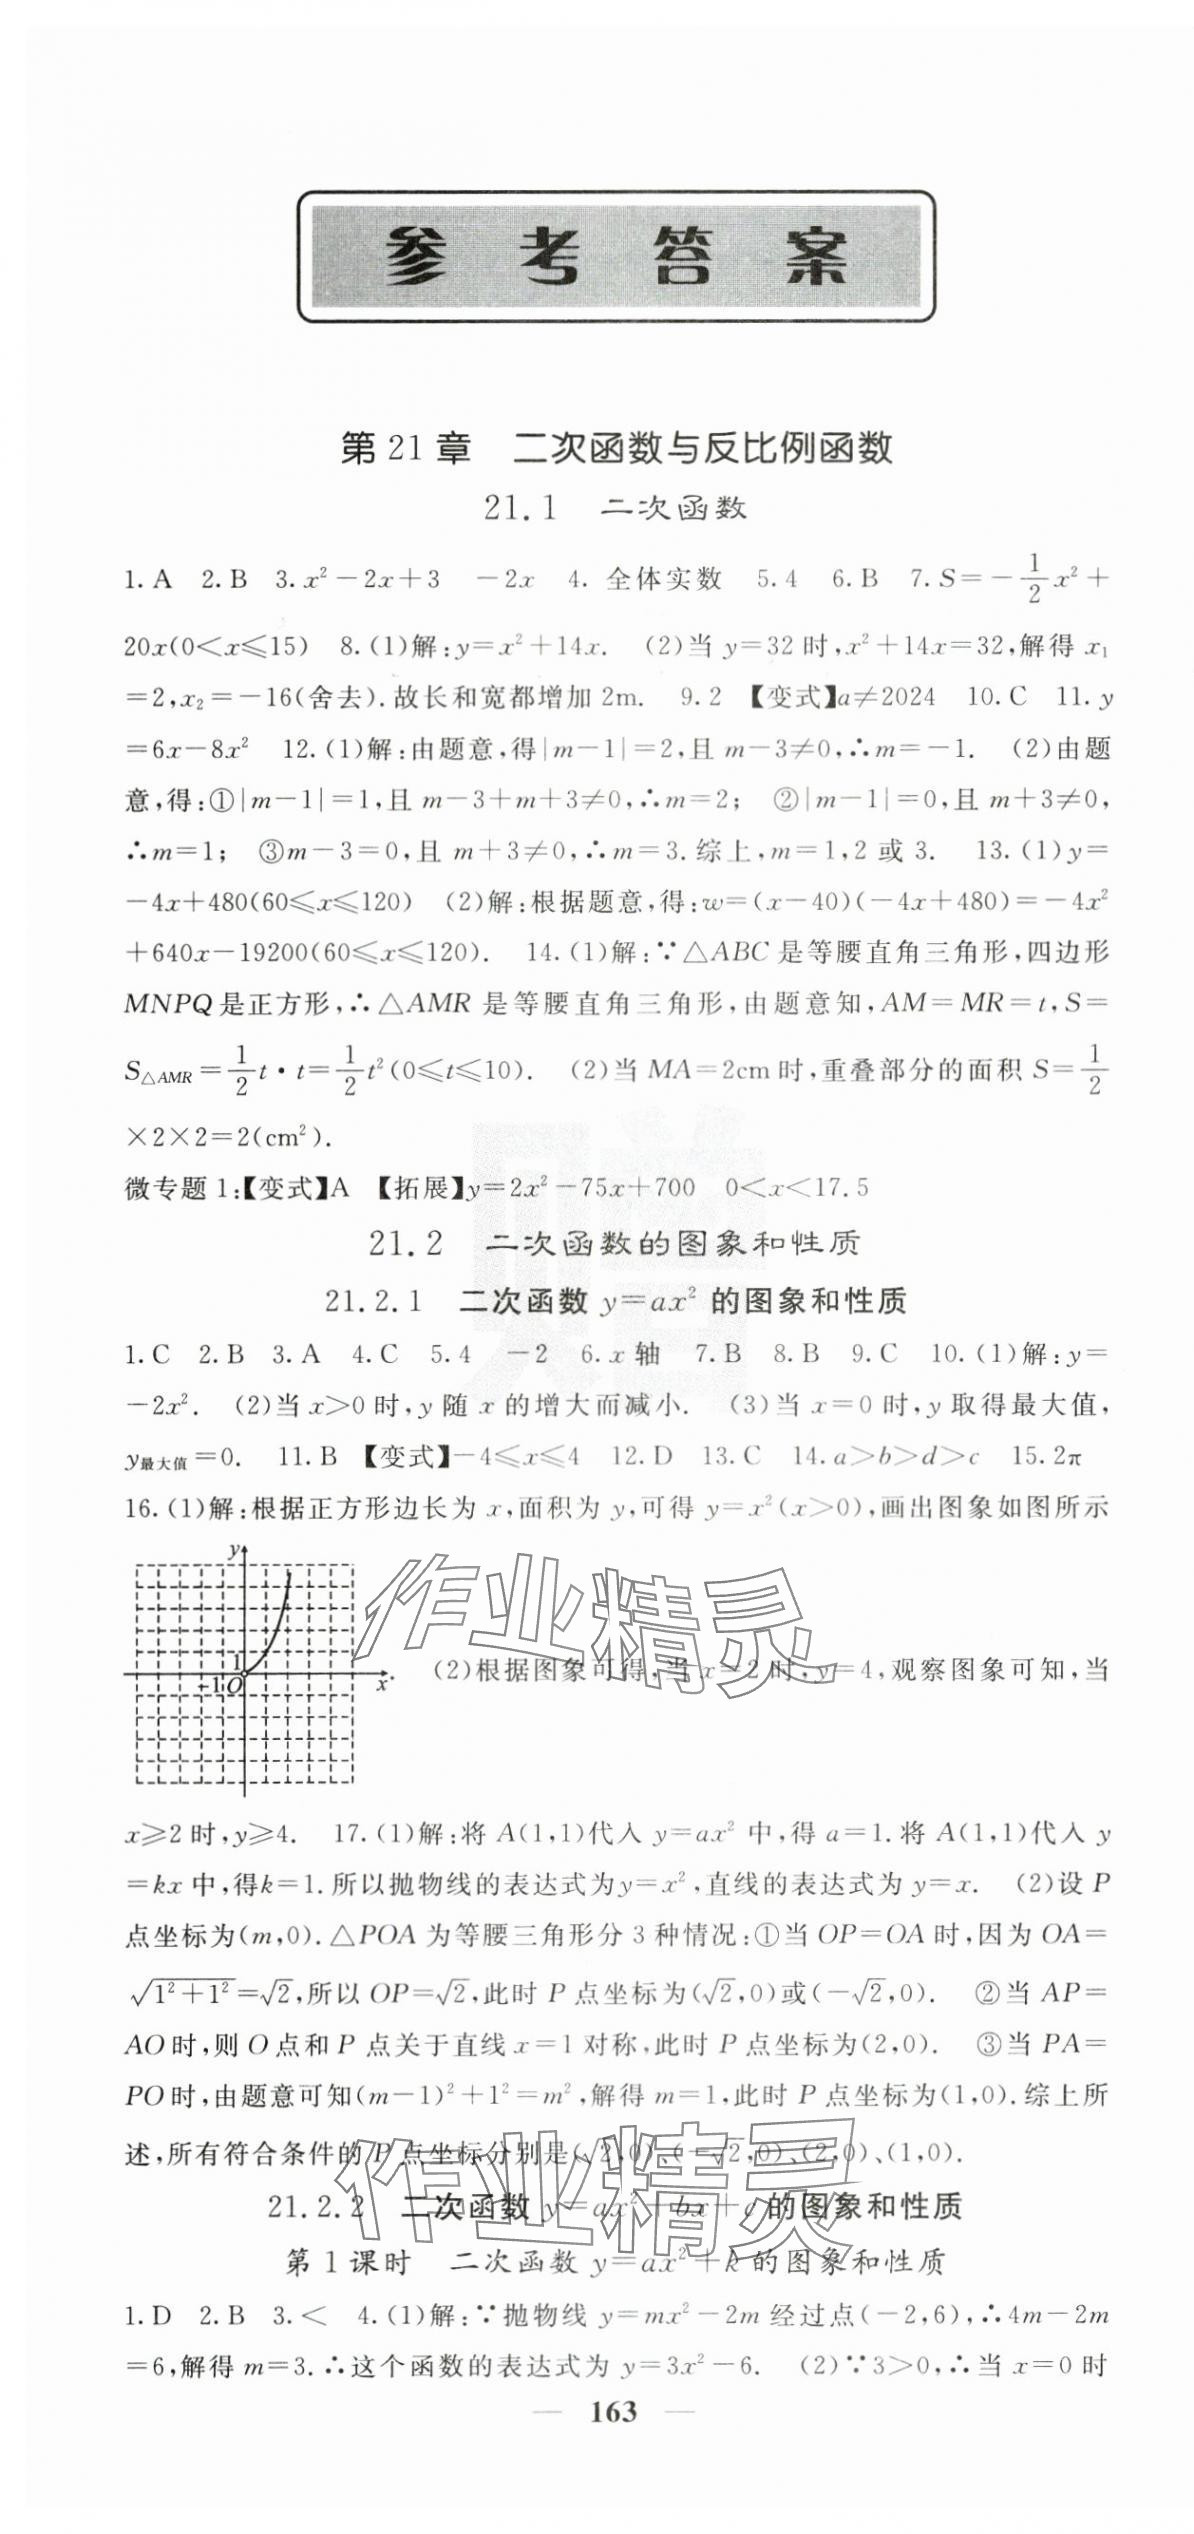 参考答案
第21章　二次函数与反比例函数
21.1　二次函数
1.A　2.B　3.x²－2x＋3　－2x　4.全体实数　5.4　6.B　7.S＝－1/2x²＋
20x(0＜x≤15)　8.(1)解:y＝x²＋14x.　(2)当 y＝32 时,x²＋14x＝32,解得 x₁
＝2,x₂＝－16(舍去).故长和宽都增加 2m.　9.2　【变式】a≠2024　10.C　11.y
＝6x－8x²　12.(1)解:由题意,得|m－1|＝2,且 m－3≠0,∴m＝－1.　(2)由题
意,得:①|m－1|＝1,且 m－3＋m＋3≠0,∴m＝2;　②|m－1|＝0,且 m＋3≠0,
∴m＝1;　③m－3＝0,且 m＋3≠0,∴m＝3.综上,m＝1,2 或 3.　13.(1)y＝
－4x＋480(60≤x≤120)　(2)解:根据题意,得:w＝(x－40)(－4x＋480)＝－4x²
＋640x－19200(60≤x≤120).　14.(1)解:∵△ABC 是等腰直角三角形,四边形
MNPQ是正方形,∴△AMR 是等腰直角三角形,由题意知,AM＝MR＝t,S＝
S△AMR＝1/2t·t＝1/2t²(0≤t≤10).　(2)当 MA＝2cm 时,重叠部分的面积 S＝1/2
×2×2＝2(cm²).
微专题 1:【变式】A　【拓展】y＝2x²－75x＋700　0＜x＜17.5
21.2　二次函数的图象和性质
21.2.1　二次函数 y＝ax² 的图象和性质
1.C　2.B　3.A　4.C　5.4　－2　6.x 轴　7.B　8.B　9.C　10.(1)解:y＝
－2x².　(2)当 x＞0 时,y 随 x 的增大而减小.　(3)当 x＝0 时,y 取得最大值,
y最大值＝0.　11.B　【变式】－4≤x≤4　12.D　13.C　14.a＞b＞d＞c　15.2π
16.(1)解:根据正方形边长为 x,面积为 y,可得 y＝x²(x＞0),画出图象如图所示
y
1
－1 O x
.　(2)根据图象可得,当 x＝2 时,y＝4,观察图象可知,当
作业精灵
x≥2 时,y≥4.　17.(1)解:将 A(1,1)代入 y＝ax² 中,得 a＝1.将 A(1,1)代入 y
＝kx 中,得k＝1.所以抛物线的表达式为y＝x²,直线的表达式为 y＝x.　(2)设 P
点坐标为(m,0).△POA 为等腰三角形分 3 种情况:①当 OP＝OA 时,因为 OA＝
√(1²＋1²)＝√2,所以 OP＝√2,此时 P 点坐标为(√2,0)或(－√2,0).　②当 AP＝
AO时,则 O 点和 P 点关于直线 x＝1 对称,此时 P 点坐标为(2,0).　③当 PA＝
PO时,由题意可知(m－1)²＋1²＝m²,解得 m＝1,此时 P 点坐标为(1,0).综上所
述,所有符合条件的 P 点坐标分别是(√2,0)、(－√2,0)、(2,0)、(1,0).
作业精灵
21.2.2　二次函数 y＝ax²＋bx＋c 的图象和性质
第 1 课时　二次函数 y＝ax²＋k 的图象和性质
1.D　2.B　3.＜　4.(1)解:∵抛物线 y＝mx²－2m 经过点(－2,6),∴4m－2m
＝6,解得 m＝3.∴这个函数的表达式为 y＝3x²－6.　(2)∵3＞0,∴当 x＝0 时
— 163 —